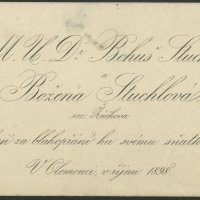 M. U. Dr. Bohuš Stuch
a
Božena Stuchlová,
roz. Žáčkova
za blahopřání ku svému sňatk
V Olomouci, v říjnu 1898.